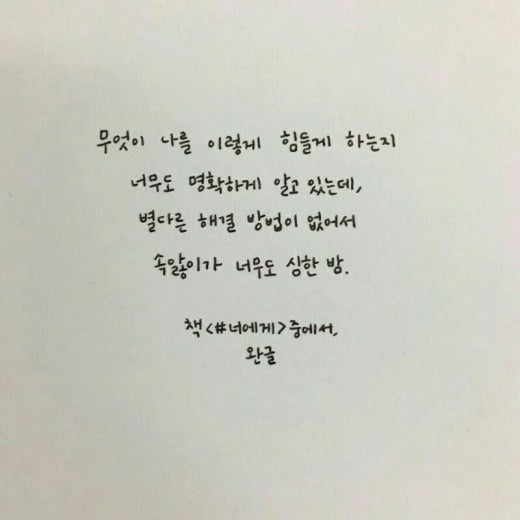 무엇이 나를 이렇게 힘들게 하는지
너무도 명확하게 알고 있는데,
별다른 해결 방법이 없어서
속앓이가 너무도 심한 밤.
책 <#너에게> 중에서,
완글